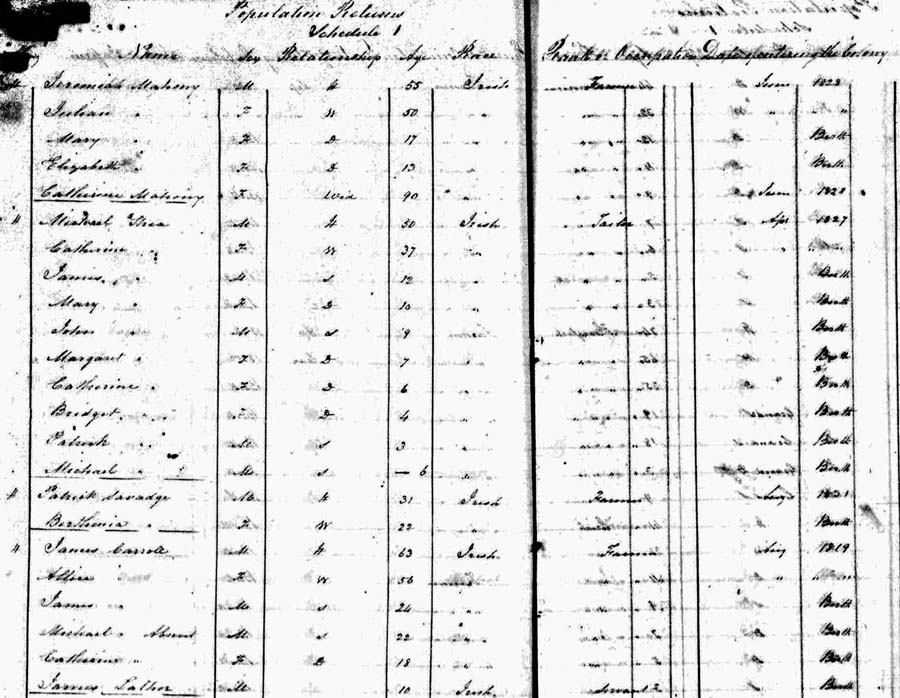 Population Returns
Schedule 1
Name Sex Relationship Age Race Rank or Occupation Date of entering the Colony
H Jeremiah Mahony M H 55 Irish Farmer June 1823
Julian " F W 50 " " "
Mary " F D 17 " Birth
Elizabeth " F D 13 " Birth
Catherine Mahony F Wid 90 " June 1828
H Michael Shea M H 50 Irish Tailor Apr 1827
Catherine " F W 37 " "
James " M S 12 " Birth
Mary " F D 10 " Birth
John " M S 9 " Birth
Margaret " F D 7 " Birth
Catherine " F D 6 " Birth
Bridget " F D 4 " Birth
Patrick " M S 3 " Birth
Michael " M S — 6 " Birth
H Patrick Savadge M H 31 Irish Farmer 1821
Berthenia " F W 22 " Birth
H James Carroll M H 63 Irish Farmer Aug 1819
F W 56 " "
James " M S 24 " Birth
Michael " Absent M S 22 " Birth
Catherine " F D 18 " Birth
James M 10 Irish Servant Birth